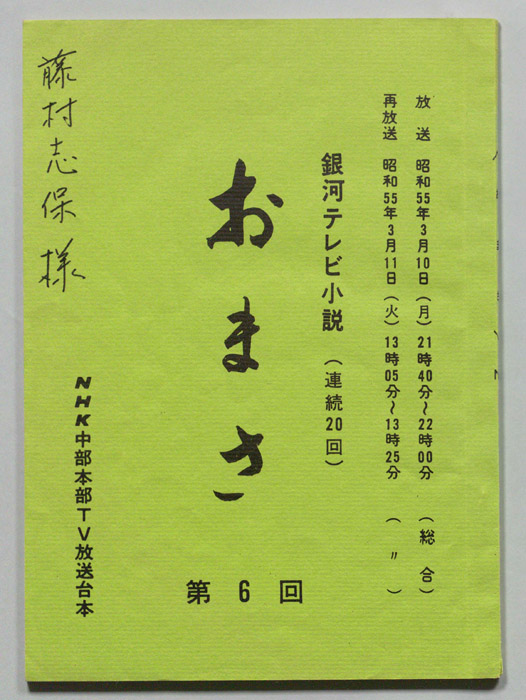 放送 昭和55年3月10日(月)21時40分~22時00分(総合)
再放送 昭和55年3月11日(火)13時05分~13時25分(〃)
銀河テレビ小説(連続20回)
おまさ
第6回
NHK中部本部TV放送台本
藤村志保様